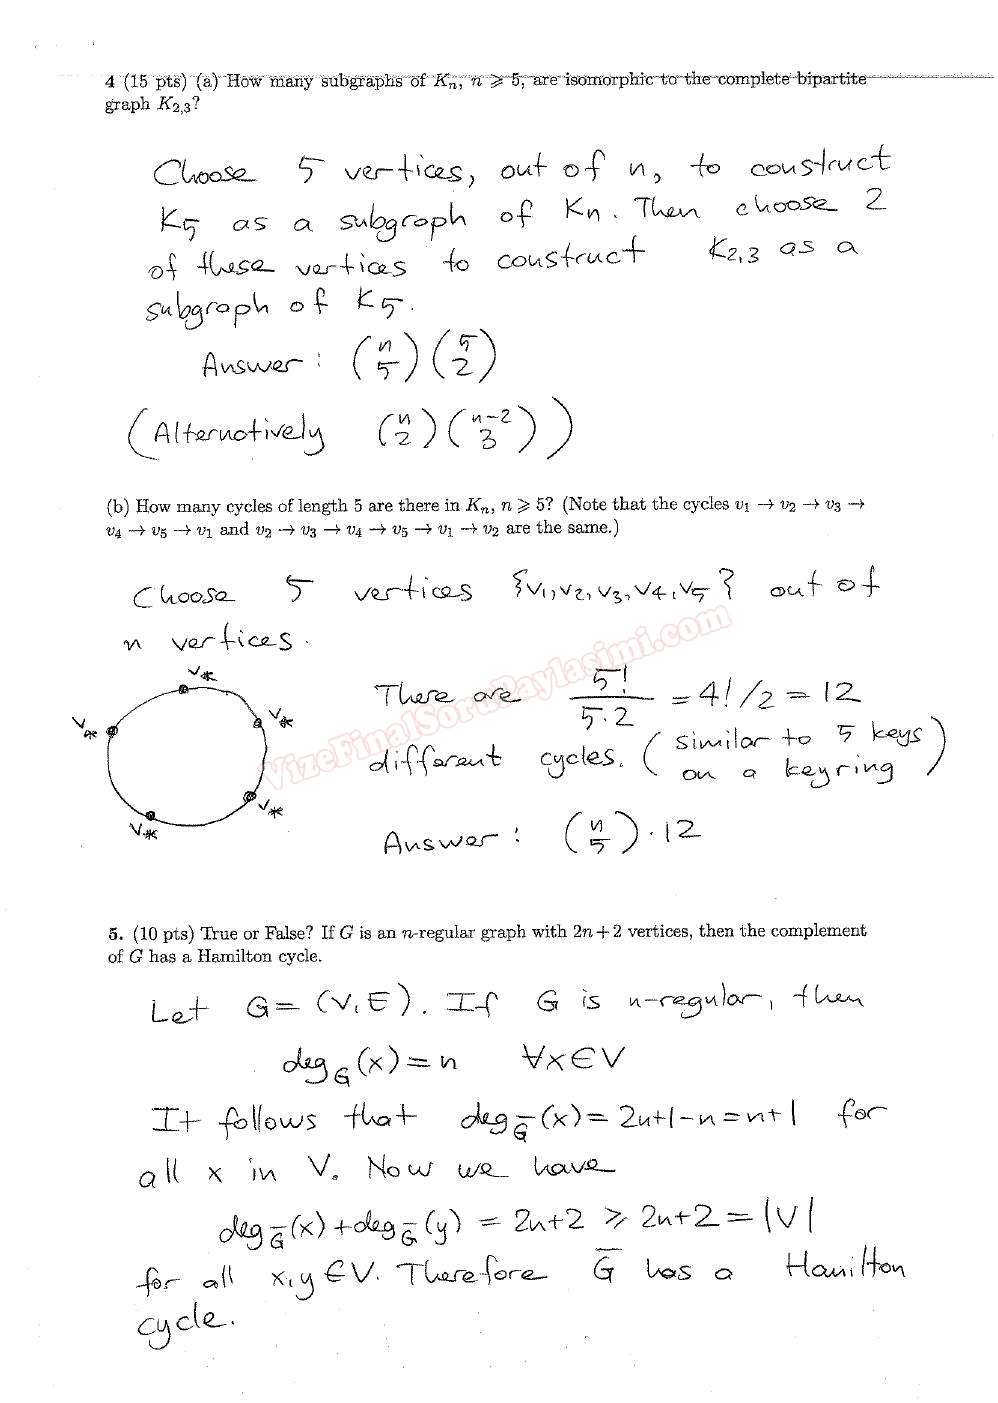 4 (15 pts) (a) How many subgraphs of Kₙ, n ⩾ 5, are isomorphic to the complete bipartite
graph K₂,₃?
Choose 5 vertices, out of n, to construct
K₅ as a subgraph of Kn. Then choose 2
of these vertices to construct K₂,₃ as a
subgraph of K₅.
Answer: (n 5)(5 2)
(Alternatively (n 2)(n-2 3))
(b) How many cycles of length 5 are there in Kₙ, n ⩾ 5? (Note that the cycles v₁ → v₂ → v₃ →
v₄ → v₅ → v₁ and v₂ → v₃ → v₄ → v₅ → v₁ → v₂ are the same.)
Choose 5 vertices {v₁,v₂,v₃,v₄,v₅} out of
n vertices.
v* v* v* v* v*
There are 5!/(5·2) = 4!/2 = 12
different cycles. (similar to 5 keys
on a keyring)
Answer: (n 5)·12
VizeFinalSoruPaylasimi.com
5. (10 pts) True or False? If G is an n-regular graph with 2n+2 vertices, then the complement
of G has a Hamilton cycle.
Let G=(V,E). If G is n-regular, then
deg_G(x)=n ∀x∈V
It follows that deg_G̅(x)=2n+1-n=n+1 for
all x in V. Now we have
deg_G̅(x)+deg_G̅(y) = 2n+2 ⩾ 2n+2 = |V|
for all x,y∈V. Therefore G̅ has a Hamilton
cycle.